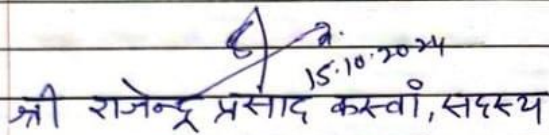 15.10.2024
श्री राजेन्द्र प्रसाद कस्वां, सदस्य